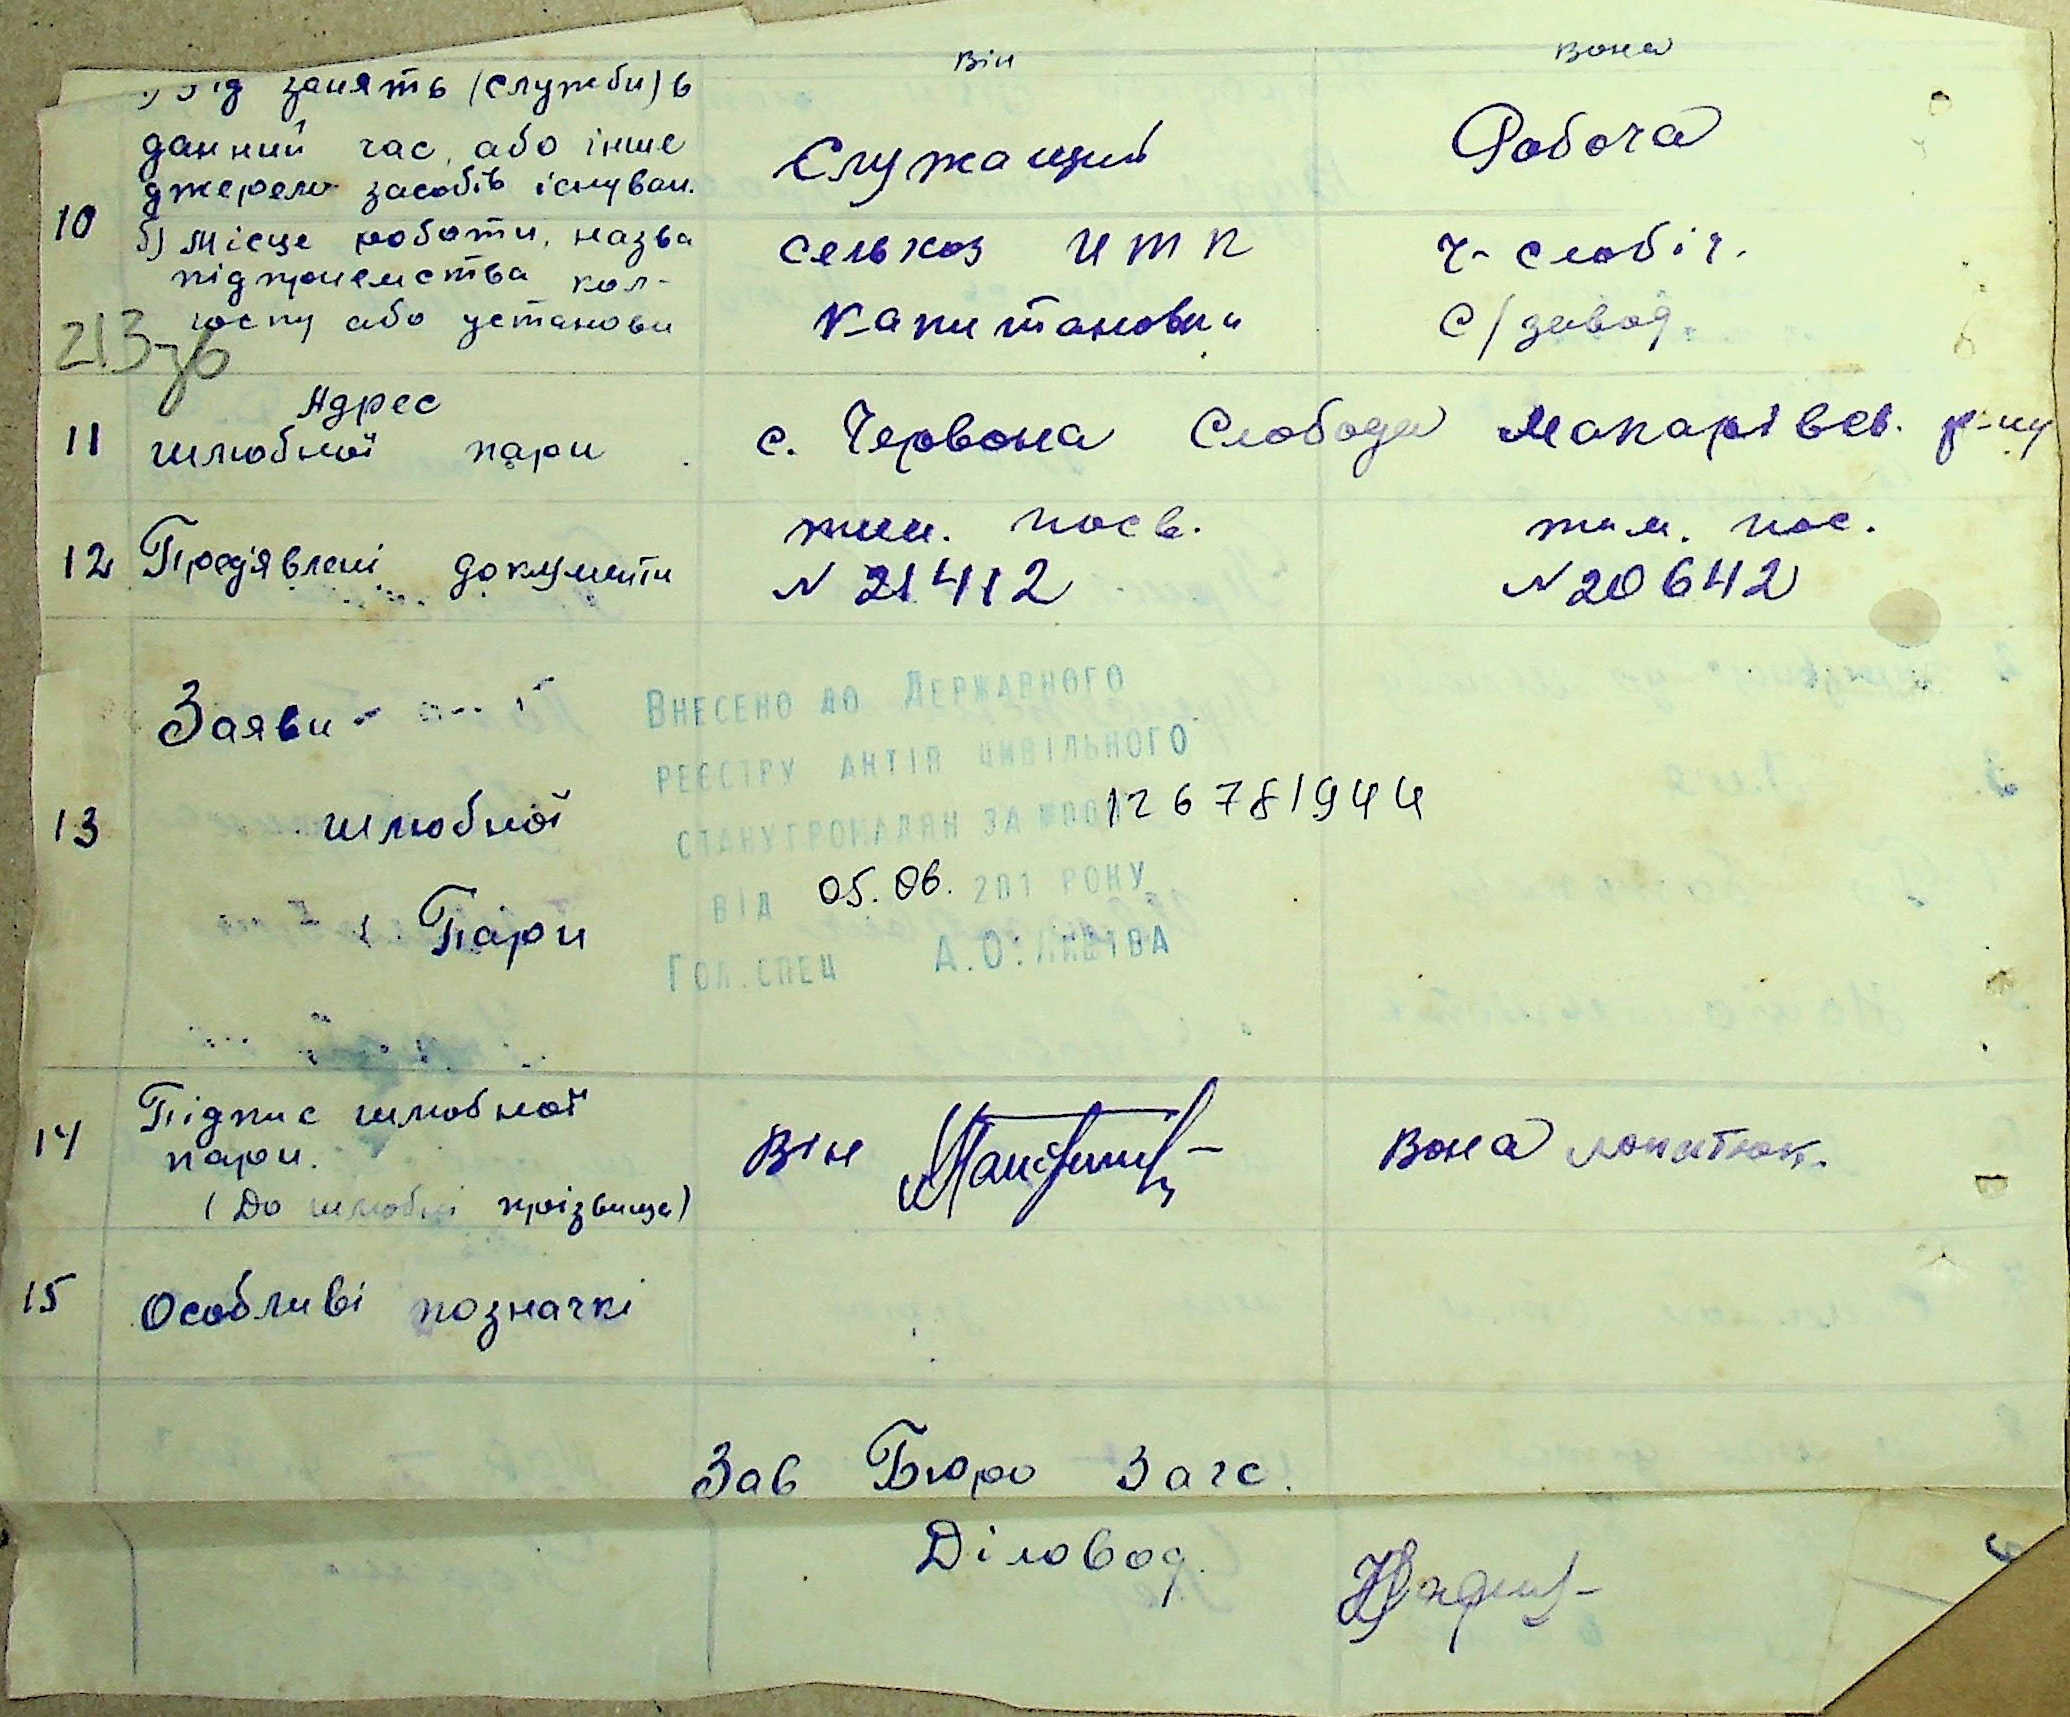 Він Вона
а) Рід занять (служби) в
данний час, або інше
джерело засобів існуван.
Служащий Робоча
10
б) Місце роботи, назва
підприємства кол-
госпу або установи
сельхоз ИТК Ч-слобід.
Капитановки С/завод.
213зв
11 Адрес
шлюбної пари
с. Червона Слобода Макарівсв. р-ну
12 Пред'явлені документи
тим. посв. тим. пос.
N 21412 N 20642
13 Заяви
шлюбної
Пари
Внесено до Державного
реєстру актів цивільного
стану громадян за №
126781944
від 05.06. 201 року
Гол.спец А.О.
14 Підпис шлюбної
пари.
(До шлюбні прізвища)
Він Вона Лопатюк.
15 Особливі позначкі
Зав Бюро Загс.
Діловод.